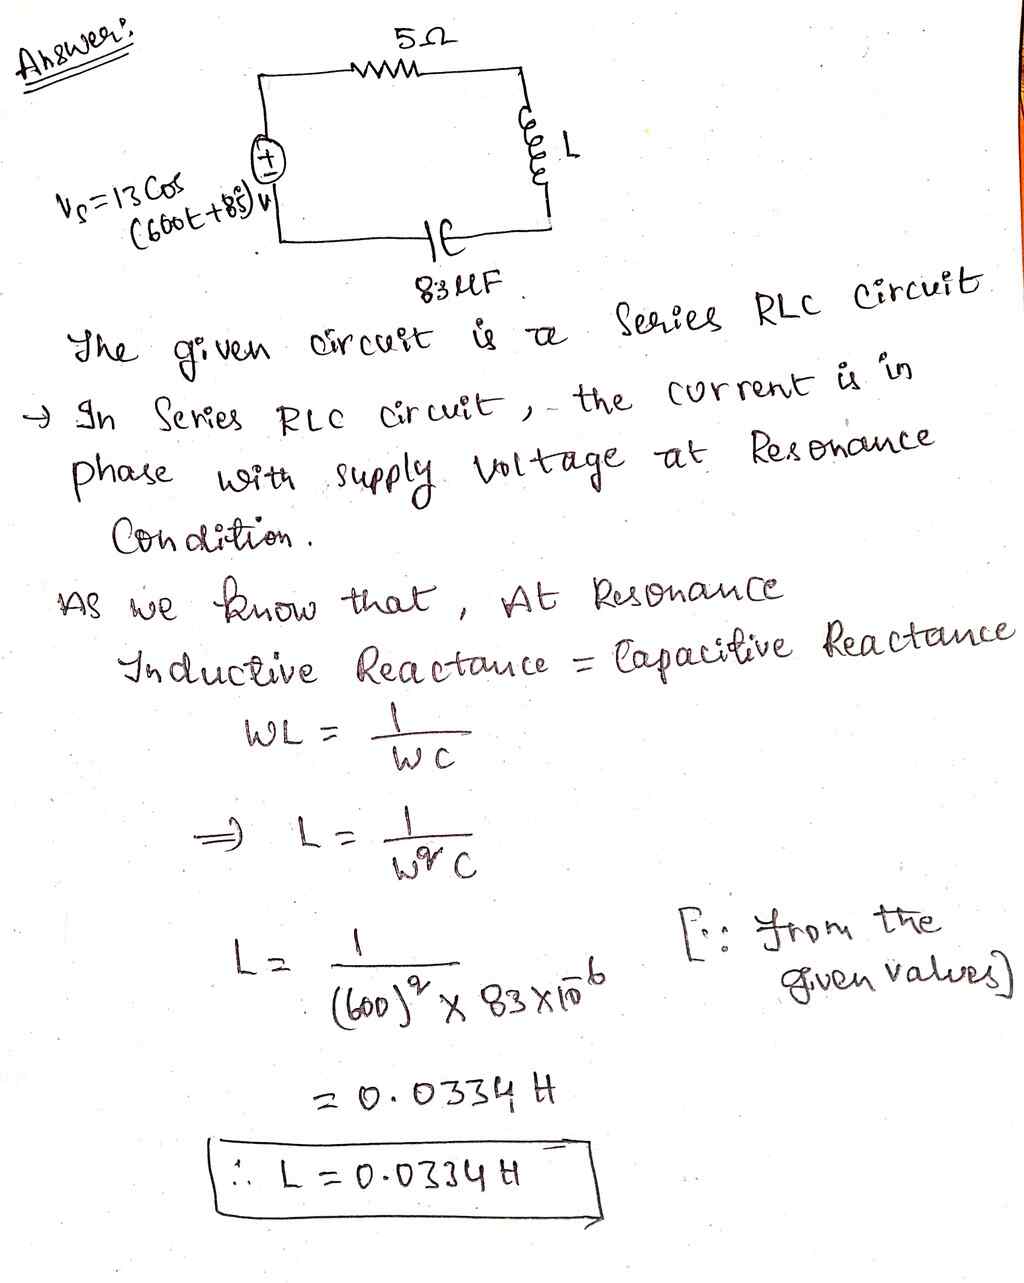 Answer:
5Ω
L
Vs=13 Cos
(600t+85°)V
83 µF
The given circuit is a Series RLC circuit
→ In Series RLC circuit, the current is in
phase with supply voltage at Resonance
Condition.
As we know that, At Resonance
Inductive Reactance = Capacitive Reactance
WL = 1/WC
⇒ L = 1/W²C
L = 1/(600)² × 83×10⁻⁶ [∵ from the
given values]
= 0.0334 H
∴ L = 0.0334 H